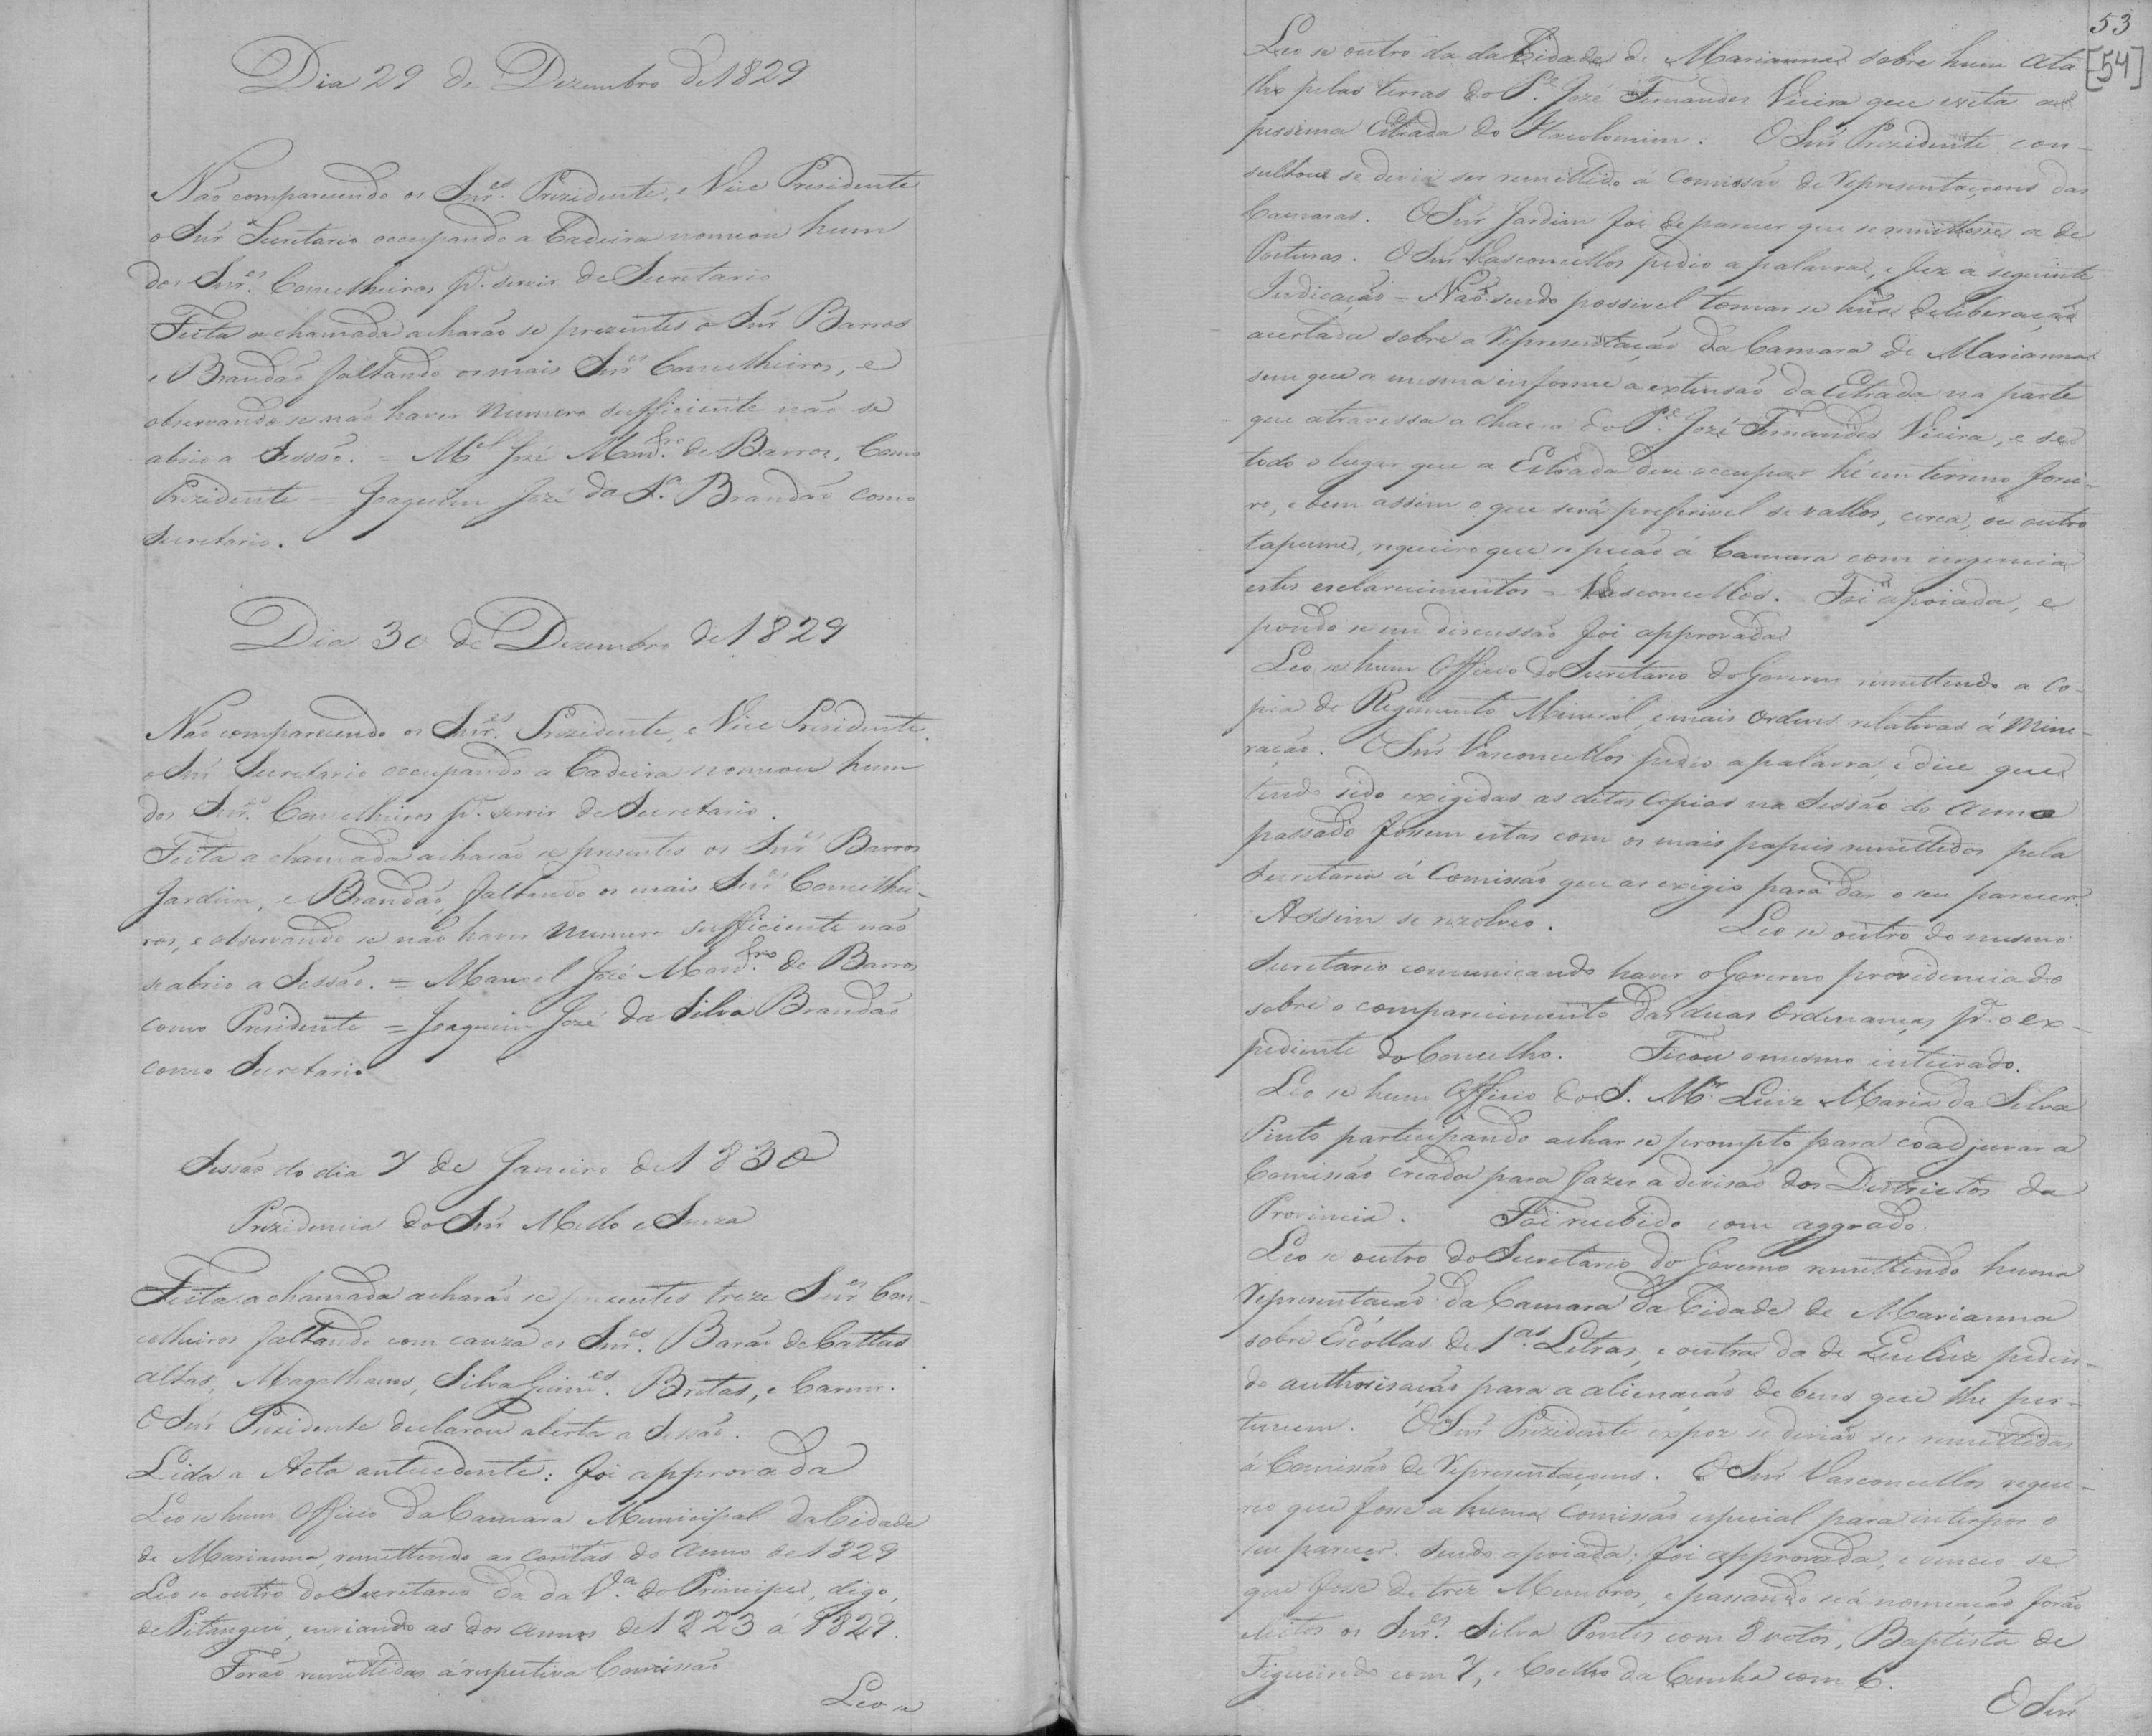 Dia 29 de Dezembro de 1829
Não comparecendo os Snr.es Prezidente, e Vice Presidente
o Snr Secretario occupando a Cadeira nomeou hum
dos Snr.es Concelheiros pa. servir de Secretario
Feita a chamada acharão se prezentes o Snr Barros
e Brandão faltando os mais Snr.es Concelheiros, e
observando se não haver numero sufficiente não se
abrio a Sessão. = M.el José Mon. de Barros, Como
Prezidente = Joaquim José da S.a Brandão como
Secretario.
Dia 30 de Dezembro de 1829
Não comparecendo os Snr.es Prezidente, e Vice Presidente
o Snr Secretario occupando a Cadeira nomeou hum
dos Snr.es Concelheiros pa. servir de Secretario.
Feita a chamada acharão se presentes os Snr.es Barros
Jardim, e Brandão, faltando os mais Snr.es Concelhei-
ros, e observando se não haver numero sufficiente não
se abrio a Sessão. = Manoel José de Barros
como Presidente = Joaquim José da Silva Brandão
como Secretario
Sessão do dia 7 de Janeiro de 1830
Prezidencia do Snr Mello e Souza
Feita a chamada acharão se prezentes treze Snr.es Con-
celheiros faltando com cauza os Snr.es Barão de Cattas
altas, Magalhaens, Silva Guim.es Bretas, e
O Snr Prezidente declarou aberta a Sessão.
Lida a Acta antecedente: foi approvada
Leo se hum Officio da Camara Municipal da Cidade
de Marianna, remettendo as contas do anno de 1829
Leo se outro do Secretario da da V.a do Principe, digo,
de Pitangui, enviando as dos annos de 1823 á 1829.
Forão remettidas á respectiva Comissão
Leo se
53
[54]
Leo se outro da da Cidade de Marianna sobre hum ata
lho pelas terras do P.e José Fernandes Vieira que evita a
pessima Estrada do Itacolomim. O Snr Prezidente con-
sultou se devia ser remettido á Comissão de Representaçoens das
Camaras. O Snr Jardim foi de parecer que se remettesse a de
Posturas. O Snr Vasconcellos pedio a palavra, e fez a seguinte
Indicação = Não sendo possivel tomar se hũa deliberação
acertada sobre a Representação da Camara de Marianna
sem que a mesma informe a extensão da Estrada na parte
que atravessa a chacra do P.e José Fernandes Vieira, e se
todo o lugar que a Estrada deve occupar hé em terreno forei-
ro, e bem assim o que será preferivel se vallos, cerca, ou outro
tapume, requeiro que se peção á Camara com urgencia
estes esclarecimentos = Vasconcellos. Foi apoiada, e
pondo se em discussão foi approvada
Leo se hum Officio do Secretario do Governo remettendo a co-
pia do Regimento Mineral, e mais ordens relativas á Mine-
ração. O Snr Vasconcellos pedio a palavra, e dice que
tendo sido exigidas as ditas copias na Sessão do anno
passado fossem estas com os mais papeis remettidos pela
Secretaria á Comissão que as exigio para dar o seu parecer.
Assim se rezolveo. Leo se outro do mesmo
Secretario comunicando haver o Governo providenciado
sobre o comparecimento das duas Ordenanças pa. o ex-
pediente do Concelho. Ficou o mesmo inteirado.
Leo se hum Officio do S. M.r Luiz Maria da Silva
Pinto participando achar se prompto para coadjuvar a
Comissão creada para fazer a divisão dos Destrictos da
Provincia. Foi recebido com aggrado.
Leo se outro do Secretario do Governo remettendo huma
Representação da Camara da Cidade de Marianna
sobre Escóllas de 1.as Letras, e outra da de Queluz pedin-
do authorisação para a alienação de bens que lhe per-
tencem. O Snr Prezidente expoz se devião ser remettidas
á Comissão de Representaçoens. O Snr Vasconcellos reque-
reo que fosse a huma comissão especial para interpor o
seu parecer. Sendo apoiada; foi approvada, e venceo se
que fosse de trez Membros, e passando se á nomeação forão
eleitos os Snr.es Silva Pontes com 8 votos, Baptista de
Figueiredo com 7, e Coelho da Cunha com 6.
O Snr